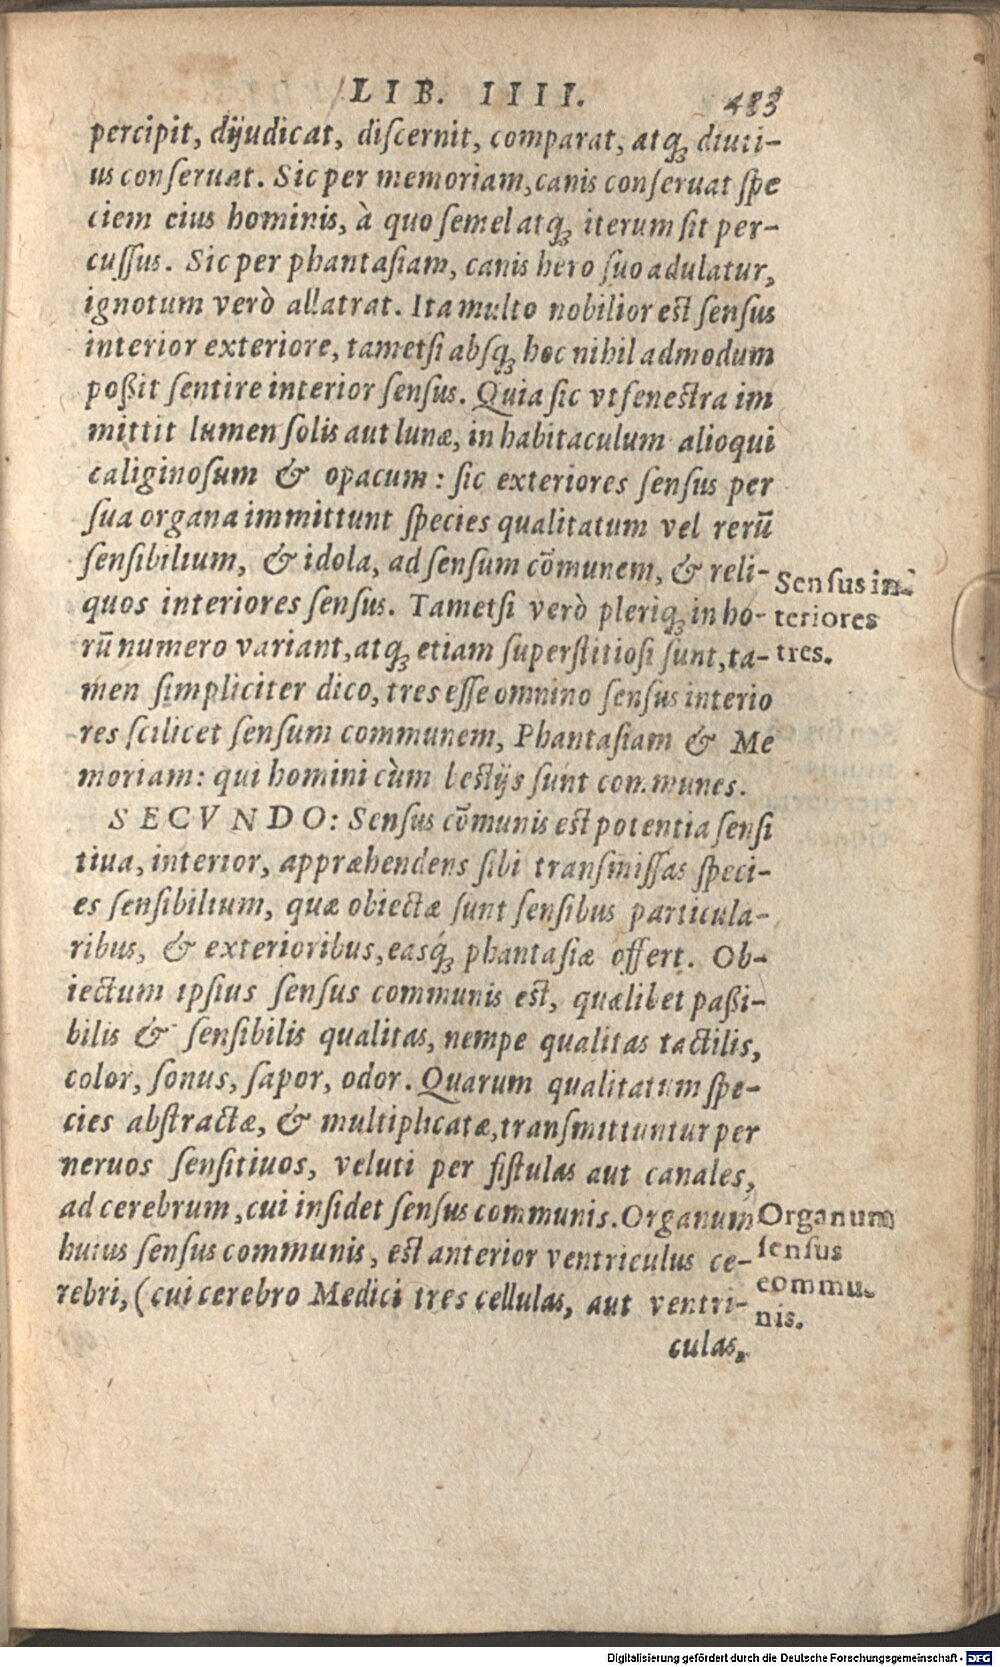 LIB. IIII. 483
percipit, dijudicat, discernit, comparat, atq́ʒ diuti-
us conseruat. Sic per memoriam, canis conseruat spe
ciem eius hominis, à quo semel atq́ʒ iterum sit per-
cussus. Sic per phantasiam, canis hero suo adulatur,
ignotum verò allatrat. Ita multo nobilior est sensus
interior exteriore, tametsi absq́ʒ hoc nihil admodum
poßit sentire interior sensus. Quia sic vt fenestra im
mittit lumen solis aut lunæ, in habitaculum alioqui
caliginosum & opacum: sic exteriores sensus per
sua organa immittunt species qualitatum vel rerũ
sensibilium, & idola, ad sensum cõmunem, & reli-
quos interiores sensus. Tametsi verò pleriq́ʒ in ho-
rũ numero variant, atq́ʒ etiam superstitiosi sunt, ta-
men simpliciter dico, tres esse omnino sensus interio
res scilicet sensum communem, Phantasiam & Me
moriam: qui homini cùm bestijs sunt communes.
Sensus in-
teriores
tres.
SECVNDO: Sensus cõmunis est potentia sensi
tiua, interior, appræhendens sibi transmissas speci-
es sensibilium, quæ obiectæ sunt sensibus particula-
ribus, & exterioribus, easq́ʒ phantasiæ offert. Ob-
iectum ipsius sensus communis est, quælibet paßi-
bilis & sensibilis qualitas, nempe qualitas tactilis,
color, sonus, sapor, odor. Quarum qualitatum spe-
cies abstractæ, & multiplicatæ, transmittuntur per
neruos sensitiuos, veluti per fistulas aut canales,
ad cerebrum, cui insidet sensus communis. Organum
huius sensus communis, est anterior ventriculus ce-
rebri, (cui cerebro Medici tres cellulas, aut ventri-
Organum
sensus
commu-
nis.
culas,
Digitalisierung gefördert durch die Deutsche Forschungsgemeinschaft - DFG